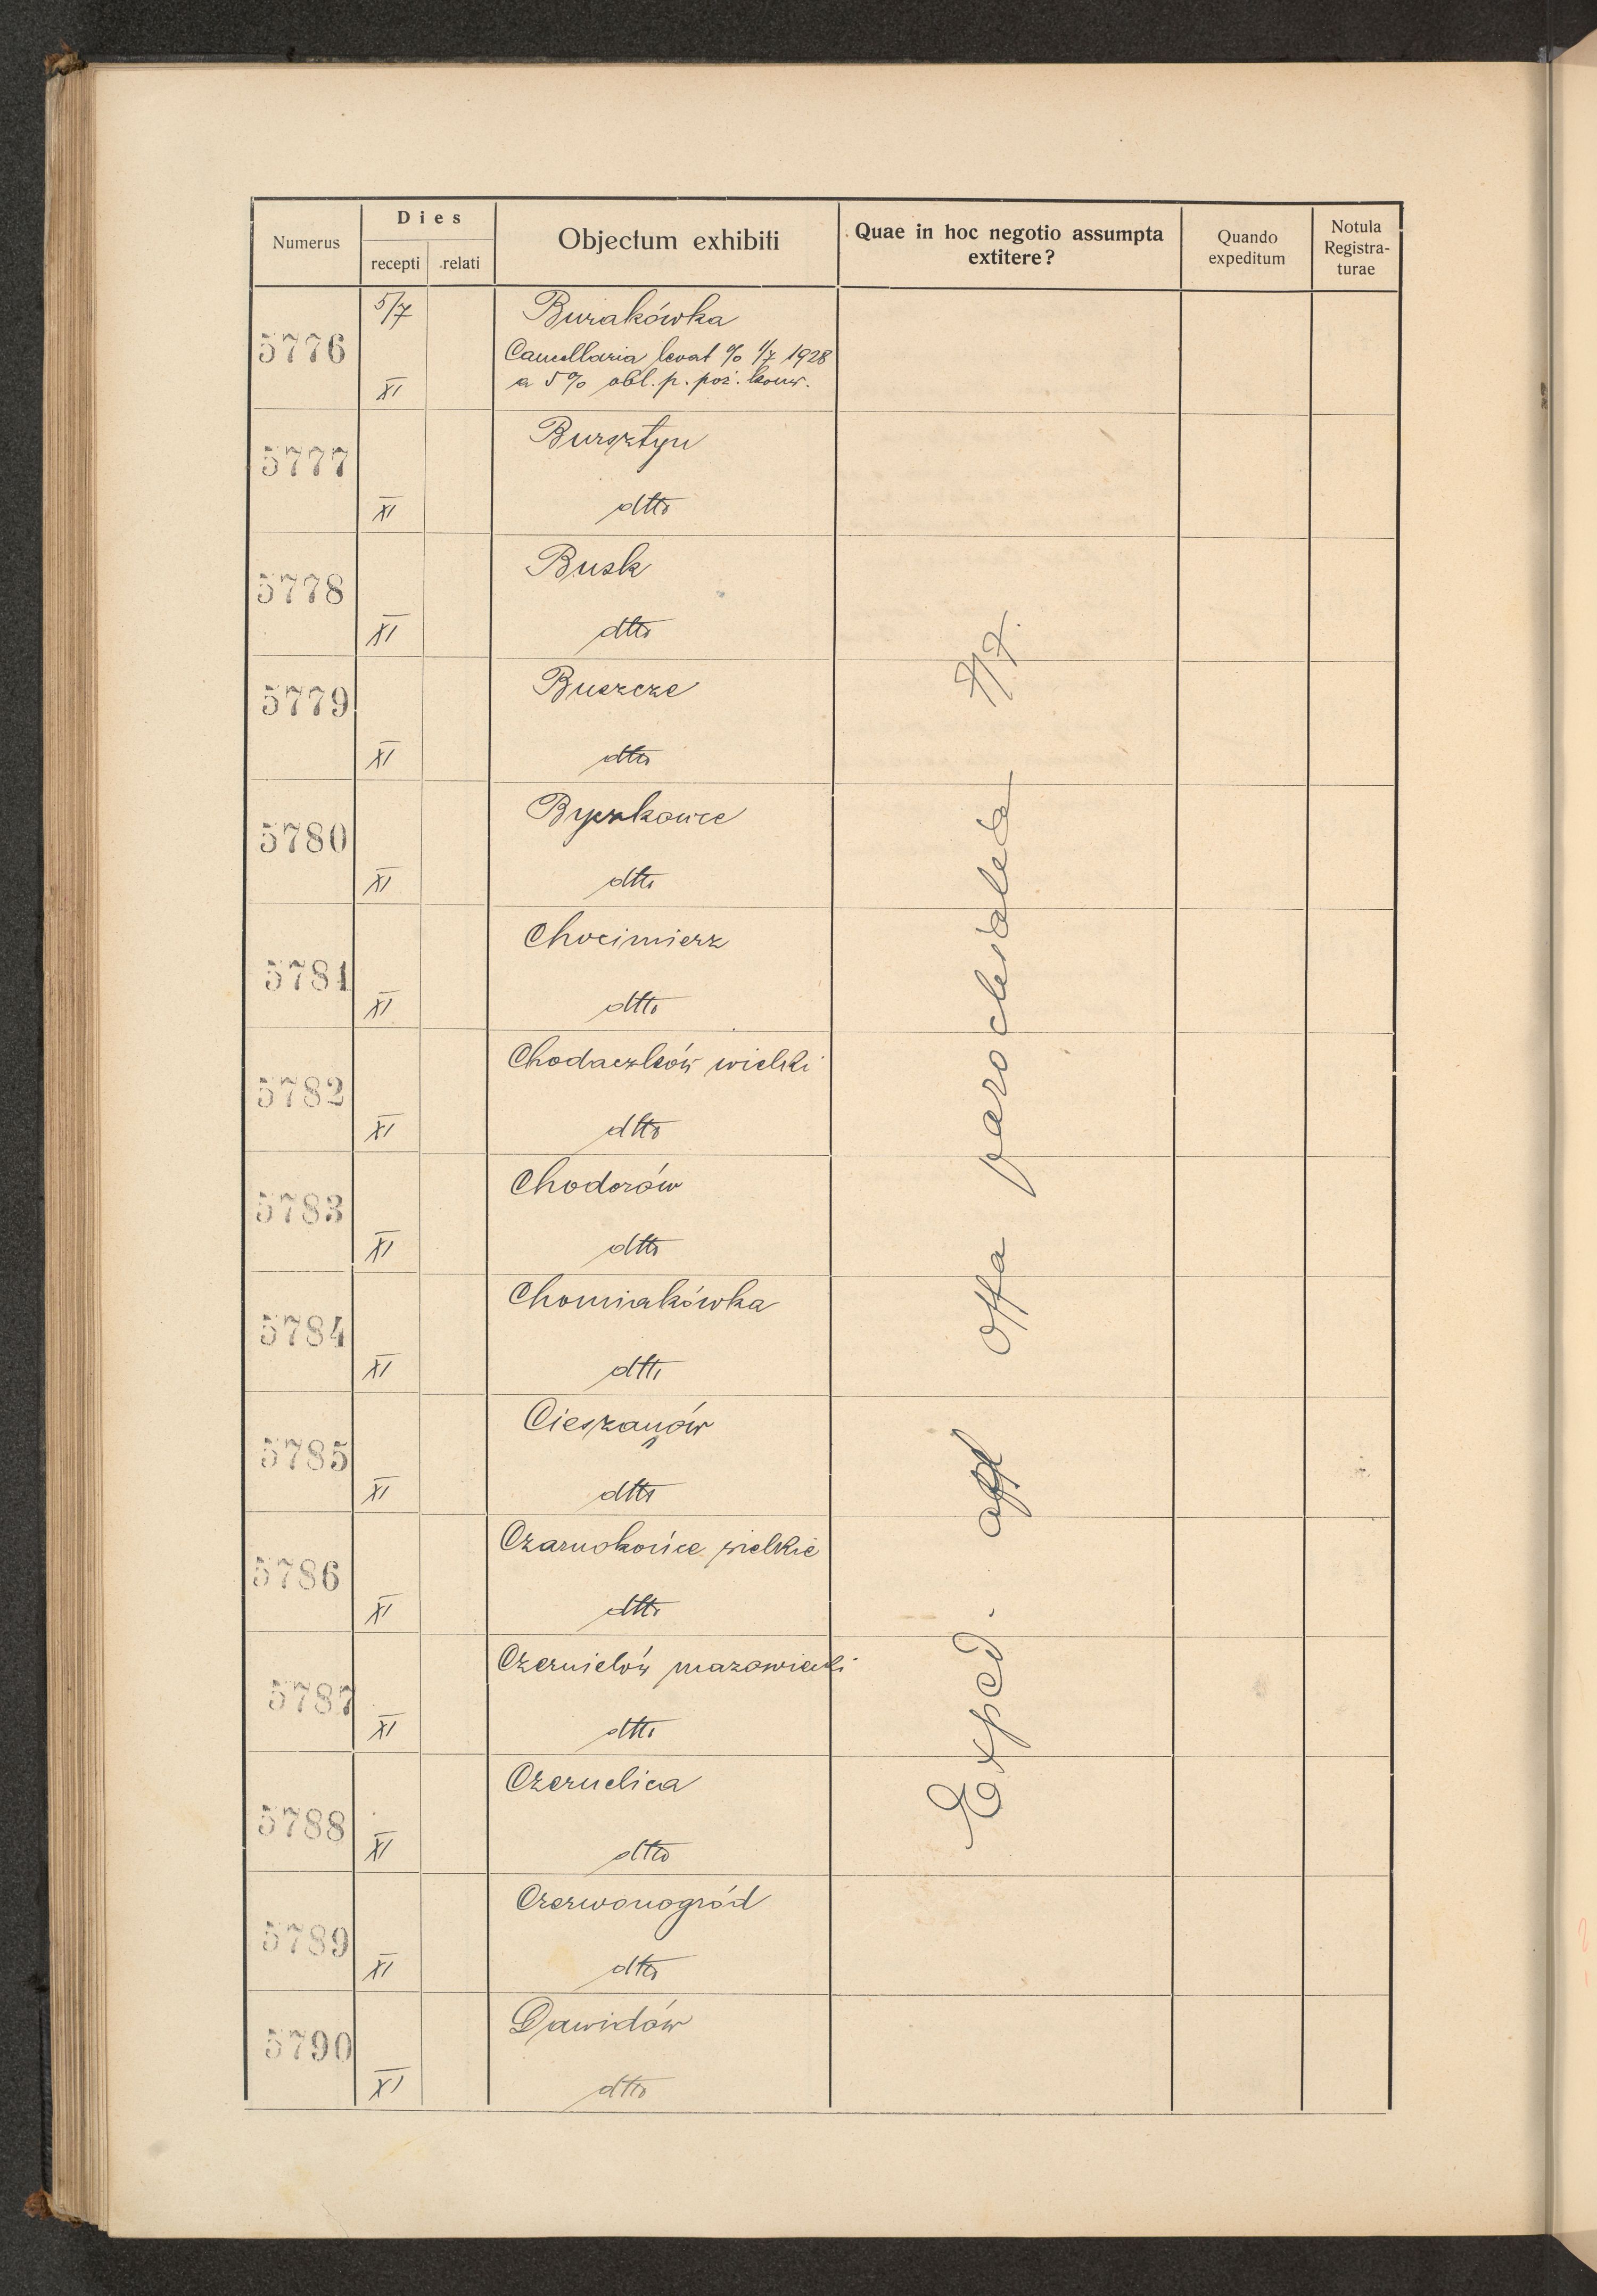 Numerus
Dies
recepti
relati
Objectum exhibiti
Quae in hoc negotio assumpta
extitere?
Quando
expeditum
Notula
Registra-
turae
5776
5/7
XI
Burakówka
Cancellaria levat % 1/7 1928
a 5% obl. p. poż. konw.
5777
XI
Bursztyn
dtto
5778
XI
Busk
dtto
5779
XI
Buszcze
dtto
5780
XI
Byszkowce
dtto
5781
XI
Chocimierz
dtto
5782
XI
Chodaczków wielki
dtto
5783
XI
Chodorów
dtto
5784
XI
Chomiakówka
dtto
5785
XI
Cieszanów
dtto
5786
XI
Czarnokońce wielkie
dtto
5787
XI
Czernielów mazowiecki
dtto
5788
XI
Czernelica
dtto
5789
XI
Czerwonogród
dtto
5790
XI
Dawidów
dtto
Exped. Offa parochialia